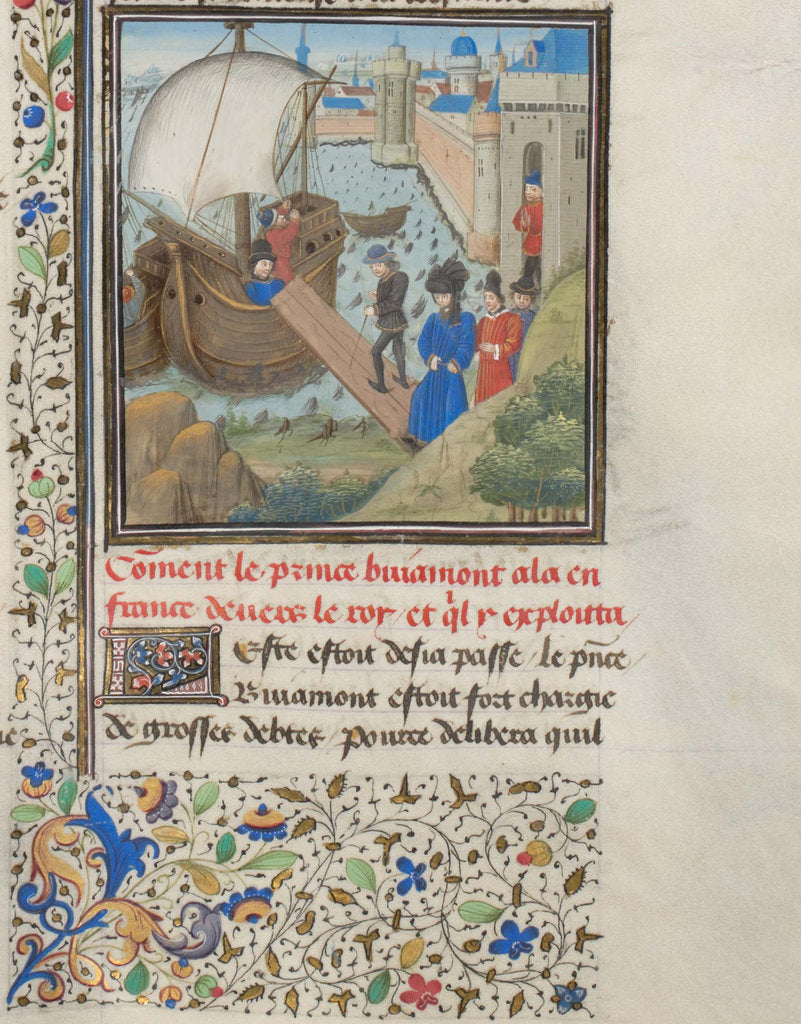 Co͞ment le prince buiamont ala en
france deuers le roy / et q̃l y exploitta /
Este estoit desia passe / le pn͞ce
Buiamont estoit fort chargie
de grosses debtes / pource delibera quil